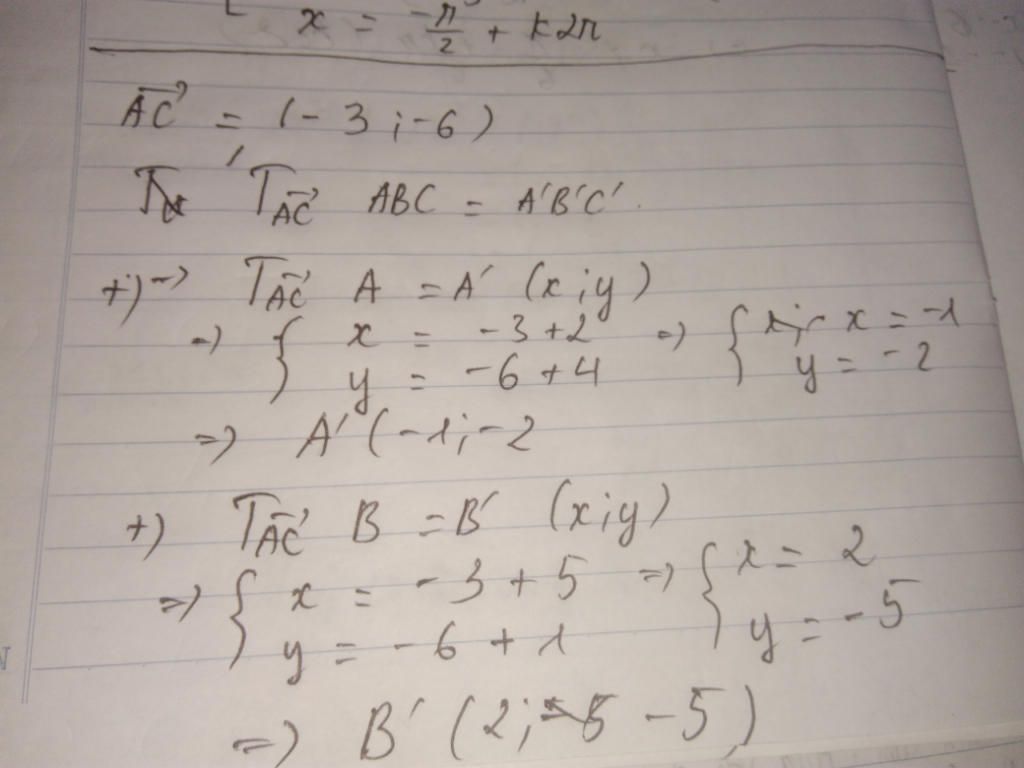 x = -π/2 + k2π
AC⃗ = (-3;-6)
T_AC⃗ ABC = A'B'C'.
+) => T_AC⃗ A = A' (x;y)
=> { x = -3+2 => { x = -1
y = -6+4 y = -2
=> A' (-1;-2
+) T_AC⃗ B = B' (x;y)
=> { x = -3+5 => { x = 2
y = -6+1 y = -5
=> B' (2; -5)